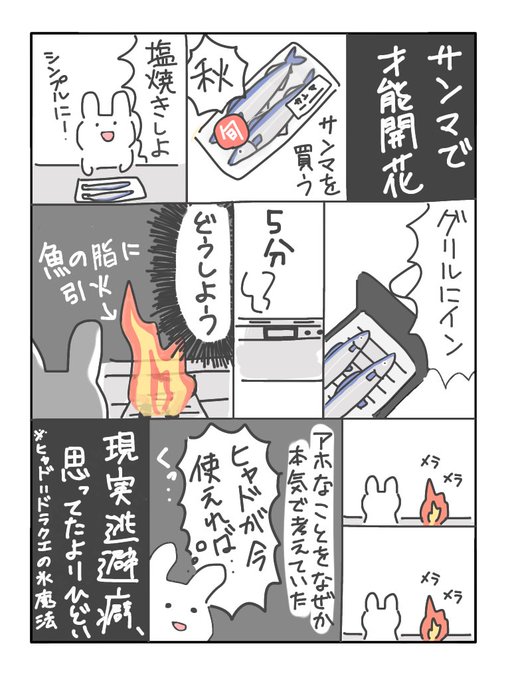 サンマで
才能開花
サンマを
買う
秋
旬
サンマ
塩焼きしよ
シンプルにー!
グリルにイン
5分
どうしよう
魚の脂に
引火
メラ
メラ
メラ
メラ
アホなことをなぜか
本気で考えていた
ヒャドが今
使えれば…
くっ…
現実逃避癖、
思ってたよりひどい
※ヒャド=ドラクエの氷魔法